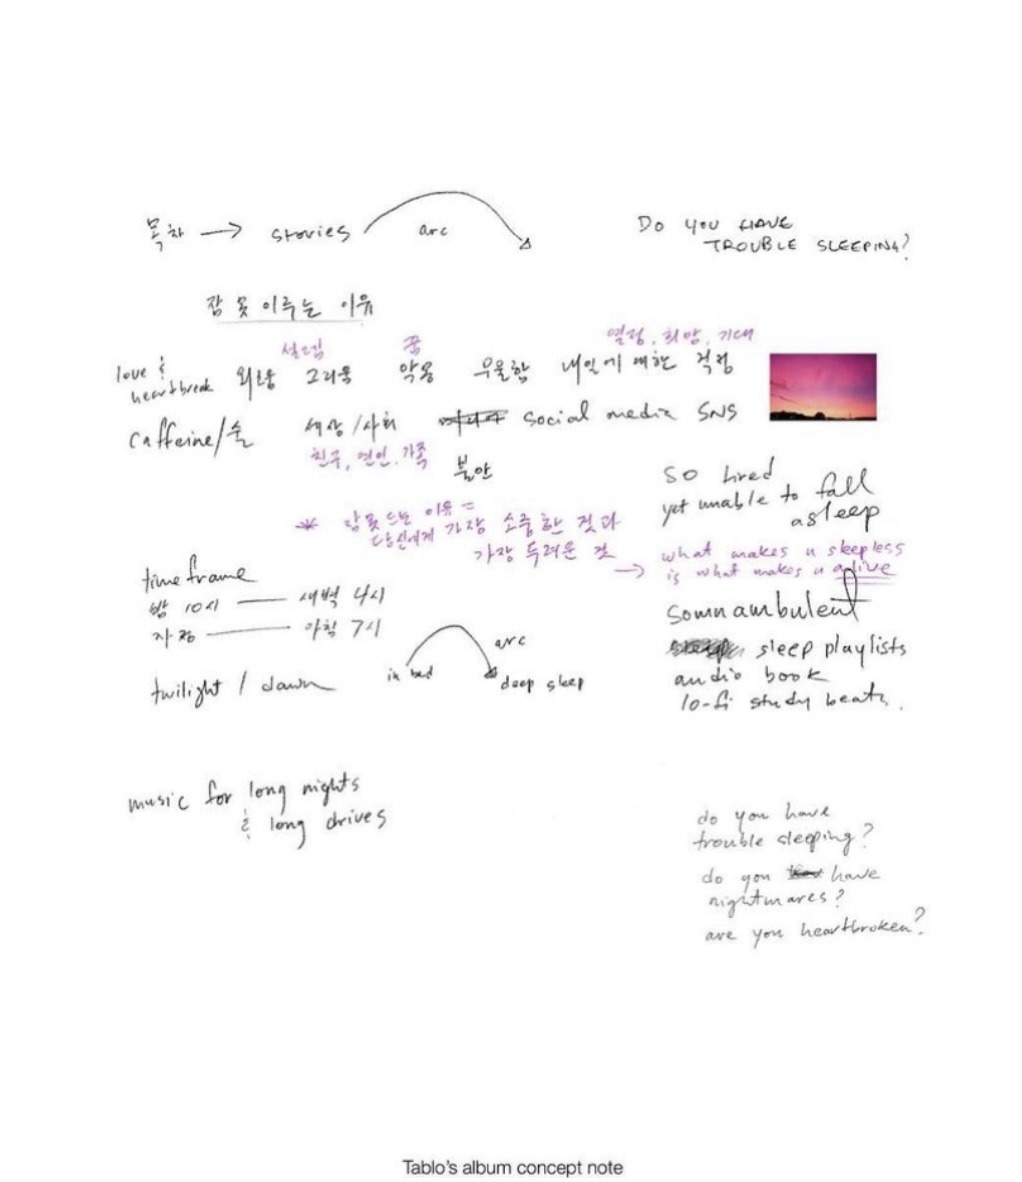 목차 → stories arc
DO YOU HAVE
TROUBLE SLEEPING?
잠 못 이루는 이유
설렘 꿈 열정, 희망, 기대
love &
heartbreak 외로움 그리움 악몽 우울함 내일에 대한 걱정
caffeine/술 세상/사회 social media SNS
친구, 연인, 가족
불안
so tired
yet unable to fall
asleep
* 잠 못 드는 이유 =
당신에게 가장 소중한 것과
가장 두려운 것
→ what makes u sleepless
is what makes u alive
time frame
밤 10시 — 새벽 4시
자정 — 아침 7시
twilight / dawn
in bed arc deep sleep
somnambulent
sleep playlists
audio book
lo-fi study beats.
music for long nights
& long drives
do you have
trouble sleeping?
do you have
nightmares?
are you heartbroken?
Tablo's album concept note